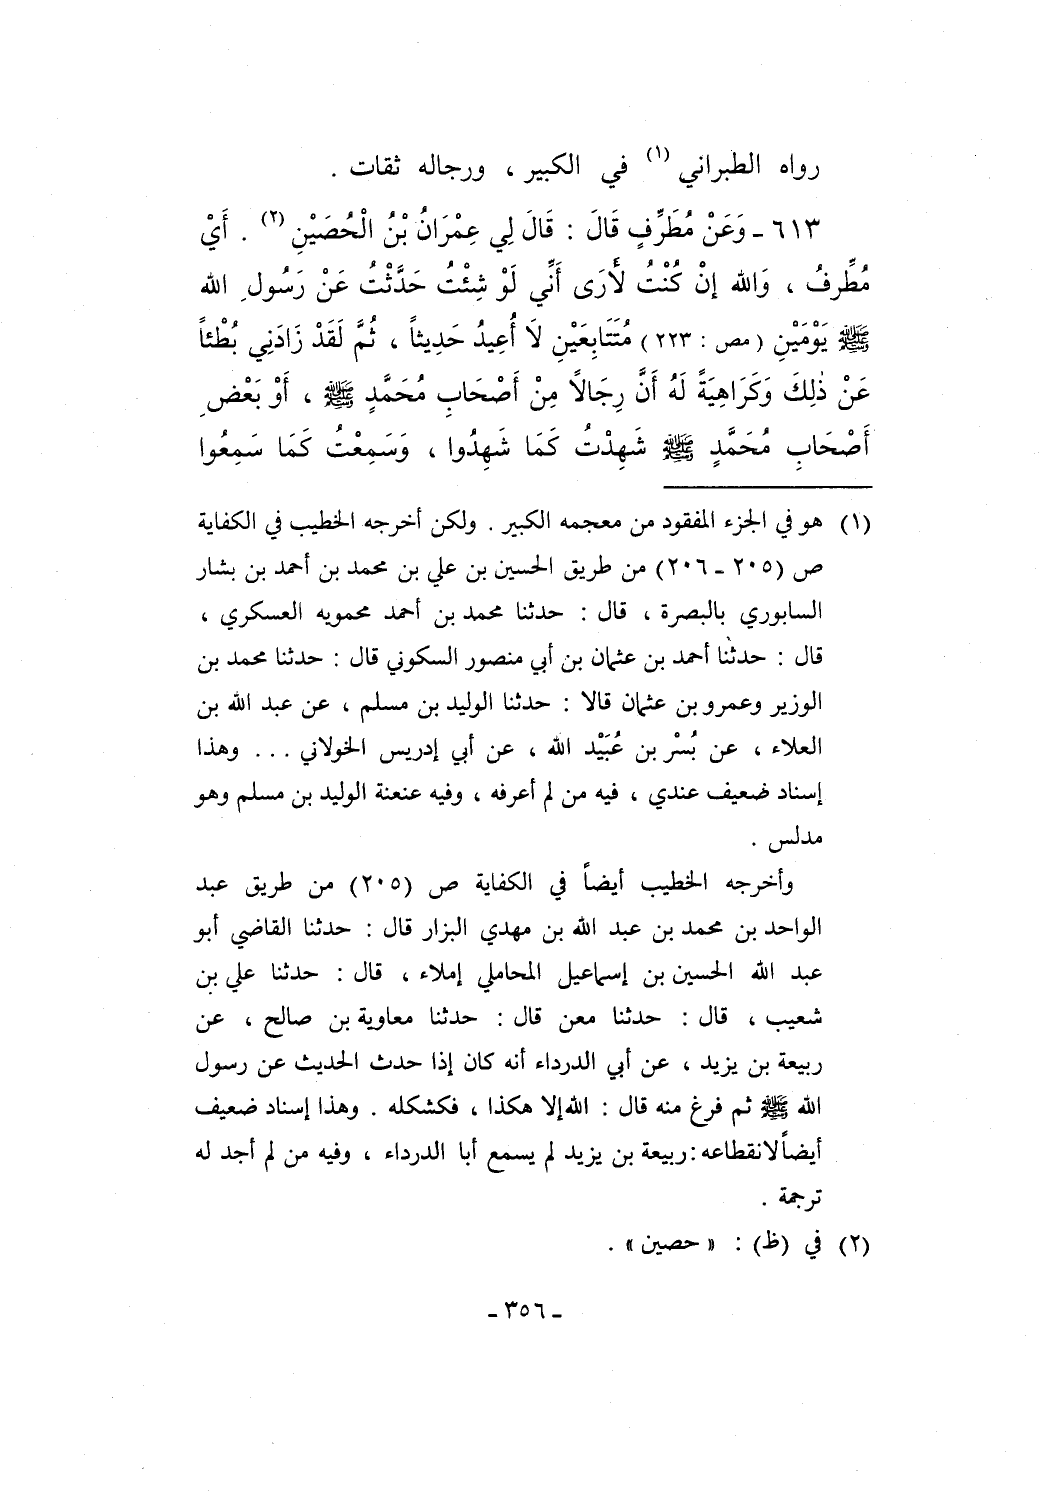 رواه الطبراني (١) في الكبير ، ورجاله ثقات .
٦١٣ ـ وَعَنْ مُطَرِّفٍ قَالَ : قَالَ لِي عِمْرَانُ بْنُ الْحُصَيْنِ (٢) . أَيْ
مُطَرِّفُ ، وَالله إنْ كُنْتُ لأَرَى أَنِّي لَوْ شِئْتُ حَدَّثْتُ عَنْ رَسُولِ الله
ﷺ يَوْمَيْنِ ( مص : ٢٢٣ ) مُتَتَابِعَيْنِ لَا أُعِيدُ حَدِيثاً ، ثُمَّ لَقَدْ زَادَنِي بُطْئاً
عَنْ ذٰلِكَ وَكَرَاهِيَةً لَهُ أَنَّ رِجَالاً مِنْ أَصْحَابِ مُحَمَّدٍ ﷺ ، أَوْ بَعْضِ
أَصْحَابِ مُحَمَّدٍ ﷺ شَهِدْتُ كَمَا شَهِدُوا ، وَسَمِعْتُ كَمَا سَمِعُوا
(١) هو في الجزء المفقود من معجمه الكبير . ولكن أخرجه الخطيب في الكفاية
ص (٢٠٥ ـ ٢٠٦) من طريق الحسين بن علي بن محمد بن أحمد بن بشار
السابوري بالبصرة ، قال : حدثنا محمد بن أحمد محمويه العسكري ،
قال : حدثنا أحمد بن عثمان بن أبي منصور السكوني قال : حدثنا محمد بن
الوزير وعمرو بن عثمان قالا : حدثنا الوليد بن مسلم ، عن عبد الله بن
العلاء ، عن بُسْر بن عُبَيْد الله ، عن أبي إدريس الخولاني ... وهذا
إسناد ضعيف عندي ، فيه من لم أعرفه ، وفيه عنعنة الوليد بن مسلم وهو
مدلس .
وأخرجه الخطيب أيضاً في الكفاية ص (٢٠٥) من طريق عبد
الواحد بن محمد بن عبد الله بن مهدي البزار قال : حدثنا القاضي أبو
عبد الله الحسين بن إسماعيل المحاملي إملاء ، قال : حدثنا علي بن
شعيب ، قال : حدثنا معن قال : حدثنا معاوية بن صالح ، عن
ربيعة بن يزيد ، عن أبي الدرداء أنه كان إذا حدث الحديث عن رسول
الله ﷺ ثم فرغ منه قال : الله إلا هكذا ، فكشكله . وهذا إسناد ضعيف
أيضاً لانقطاعه : ربيعة بن يزيد لم يسمع أبا الدرداء ، وفيه من لم أجد له
ترجمة .
(٢) في (ظ) : « حصين » .
ـ ٣٥٦ ـ